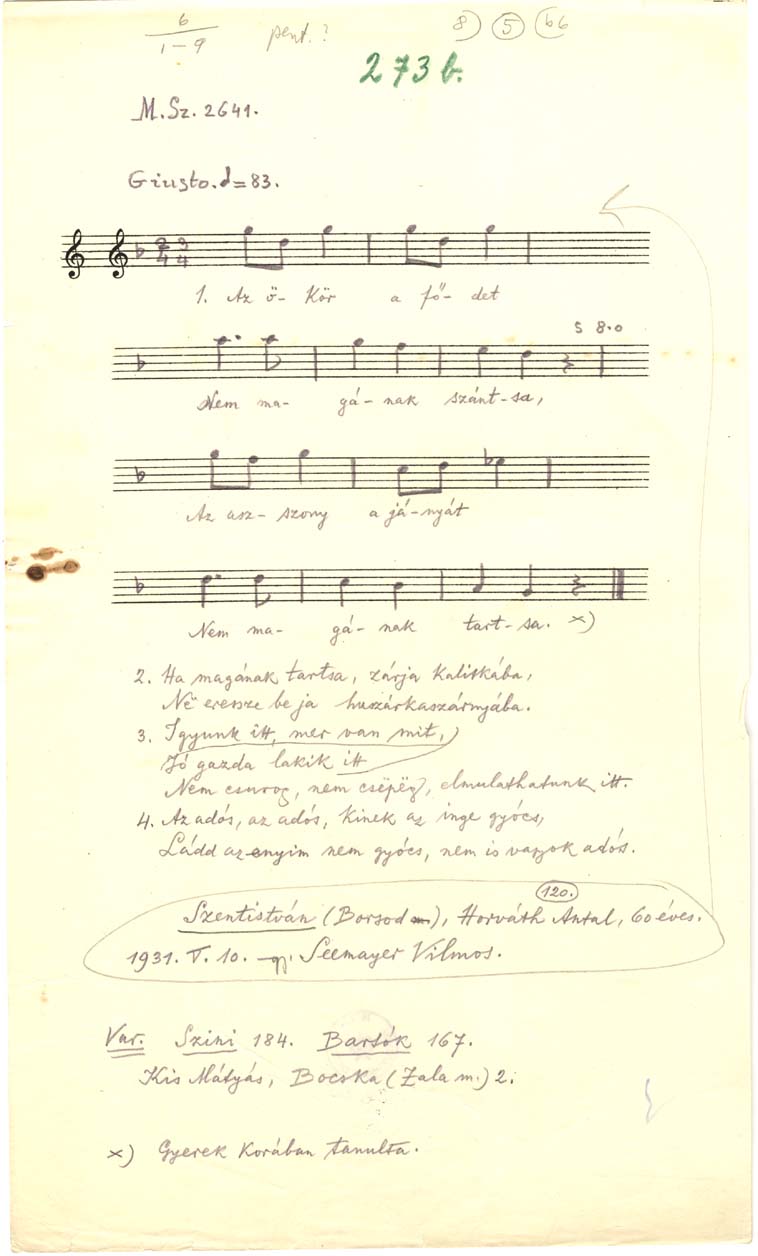 6
1-9
pent.?
8) 5 b6
273 b.
M.Sz. 2641.
Giusto. ♩=83.
2 3
4 4
1. Az ö- kör a fő- det
5 8.0
Nem ma- gá- nak szánt-sa,
Az asz- szony a já-nyát
Nem ma- gá- nak tart-sa. x)
2. Ha magának tartsa, zárja kalitkába,
Në eressze be ja huszárkaszárnyába.
3. Igyunk itt, mer van mit,
Jó gazda lakik itt
Nem csurog, nem csëpëg, elmulathatunk itt.
4. Az adós, az adós, kinek az inge gyócs,
Ládd az enyim nem gyócs, nem is vagyok adós.
120.
Szentistván (Borsod), Horváth Antal, 60 éves.
1931. V. 10. gy. Seemayer Vilmos.
Var. Szini 184. Bartók 167.
Kis Mátyás, Bocska (Zala m.) 2.
x) Gyerek korában tanulta.